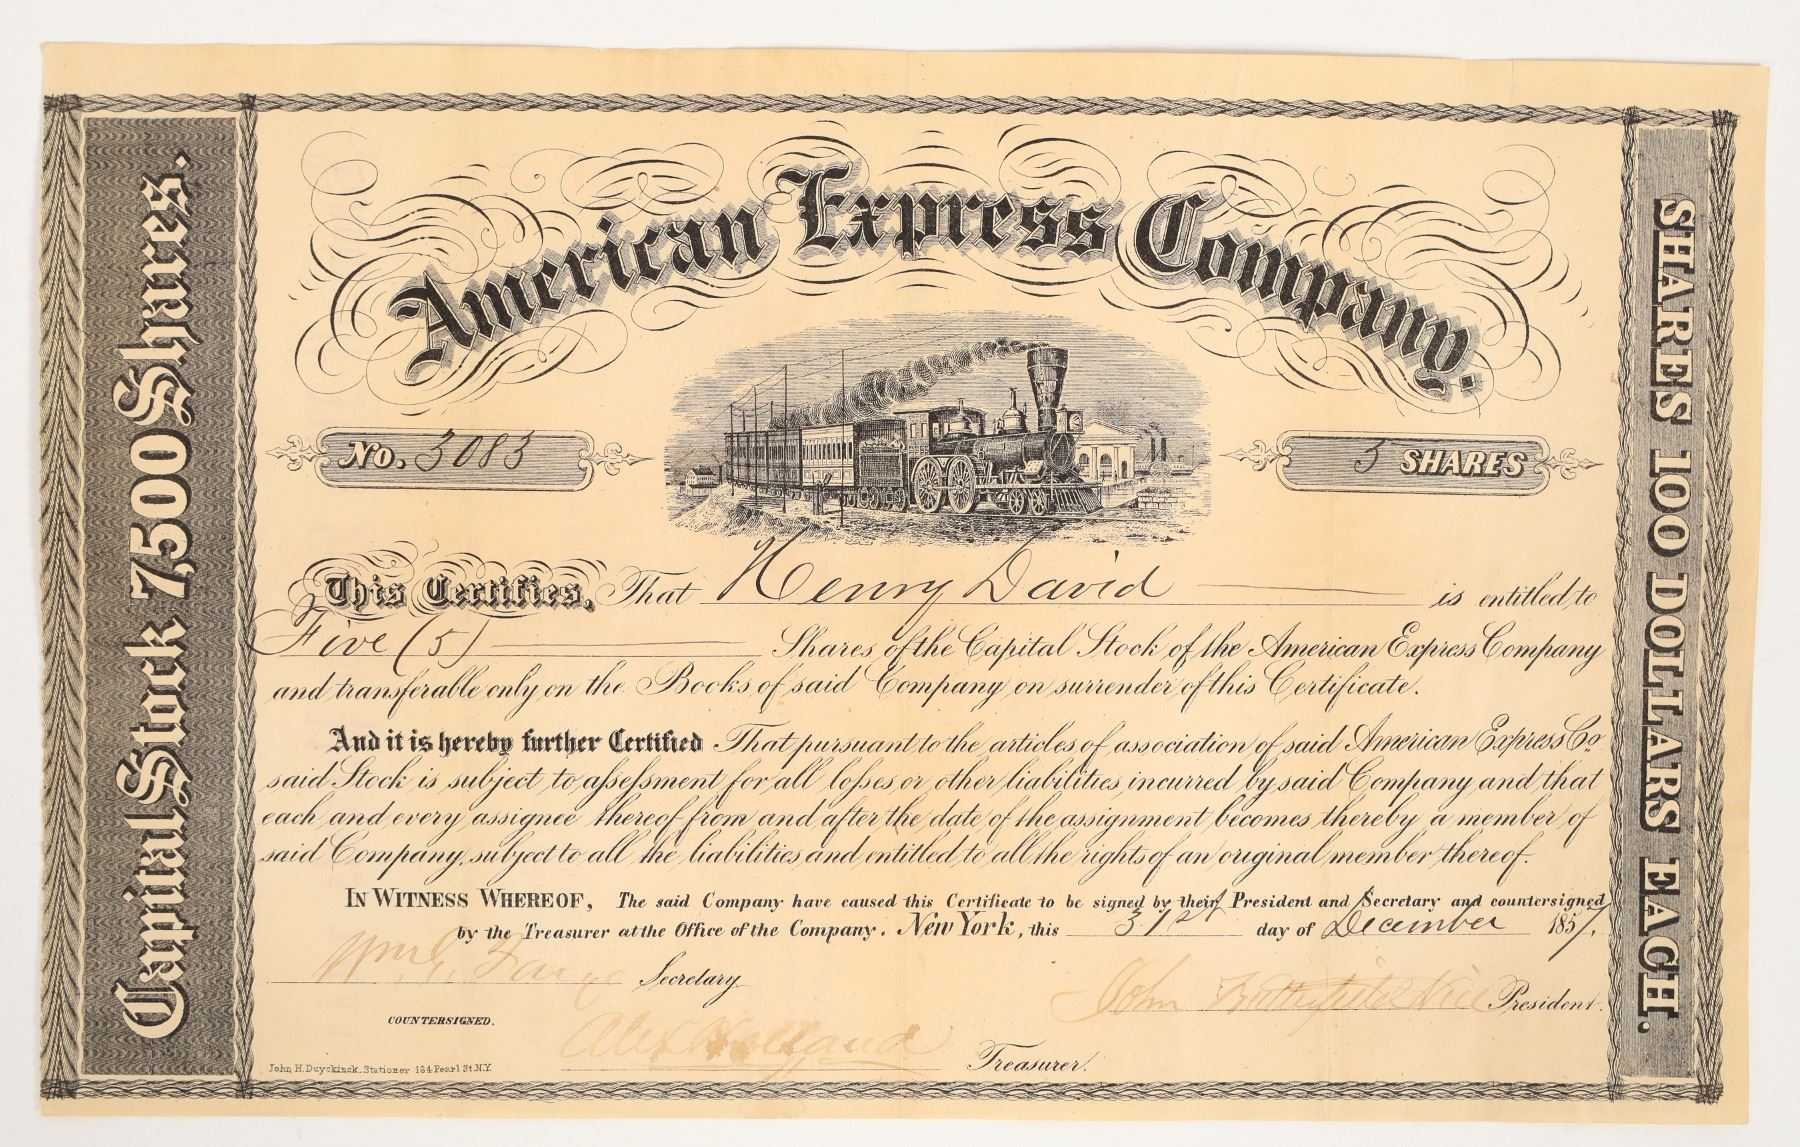 American Express Company.
Capital Stock 7,500 Shares.
SHARES 100 DOLLARS EACH.
No. 3083
5 SHARES
This Certifies, That Henry David is entitled to
Five (5) Shares of the Capital Stock of the American Express Company
and transferable only on the Books of said Company on surrender of this Certificate.
And it is hereby further Certified That pursuant to the articles of association of said American Express Co
said Stock is subject to assessment for all losses or other liabilities incurred by said Company and that
each and every assignee thereof from and after the date of the assignment becomes thereby a member of
said Company, subject to all the liabilities and entitled to all the rights of an original member thereof.
IN WITNESS WHEREOF, The said Company have caused this Certificate to be signed by their President and Secretary and countersigned
by the Treasurer at the Office of the Company. New York, this 31st day of December 1857.
Wm. G. Fargo Secretary
John Butterfield Vice President.
COUNTERSIGNED.
Alex Holland Treasurer.
John H. Duyckinck, Stationer 164 Pearl St. N.Y.